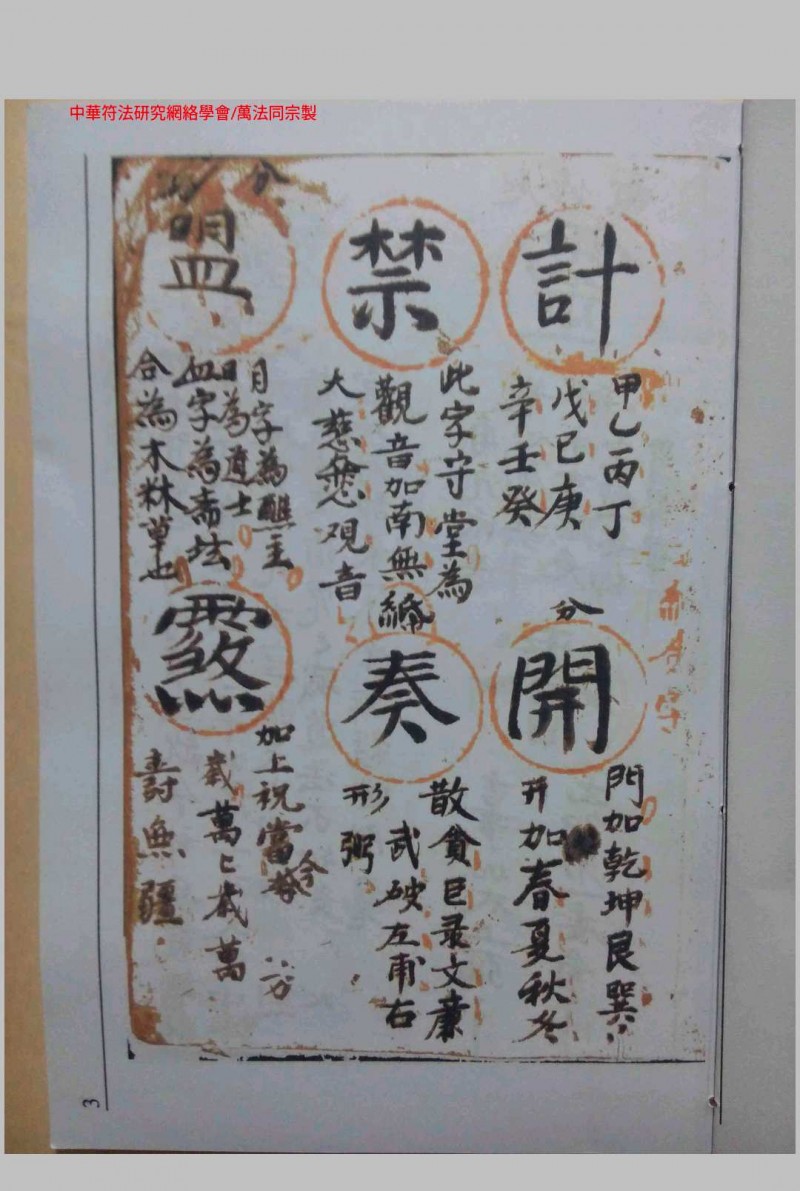 中華符法研究網絡學會/萬法同宗製
計
甲乙丙丁
戊己庚
辛壬癸
禁
此字守堂為
觀音加南無
大慈悲观音
分
盟
月字為醮主
日為道士
血字為斋坛
合為木林草也
分
開
門加乾坤艮巽
开加春夏秋冬
奏
散貪巨录文亷
武破左甫右
形弼
加上祝當今
歲萬上歲萬
壽無疆
3